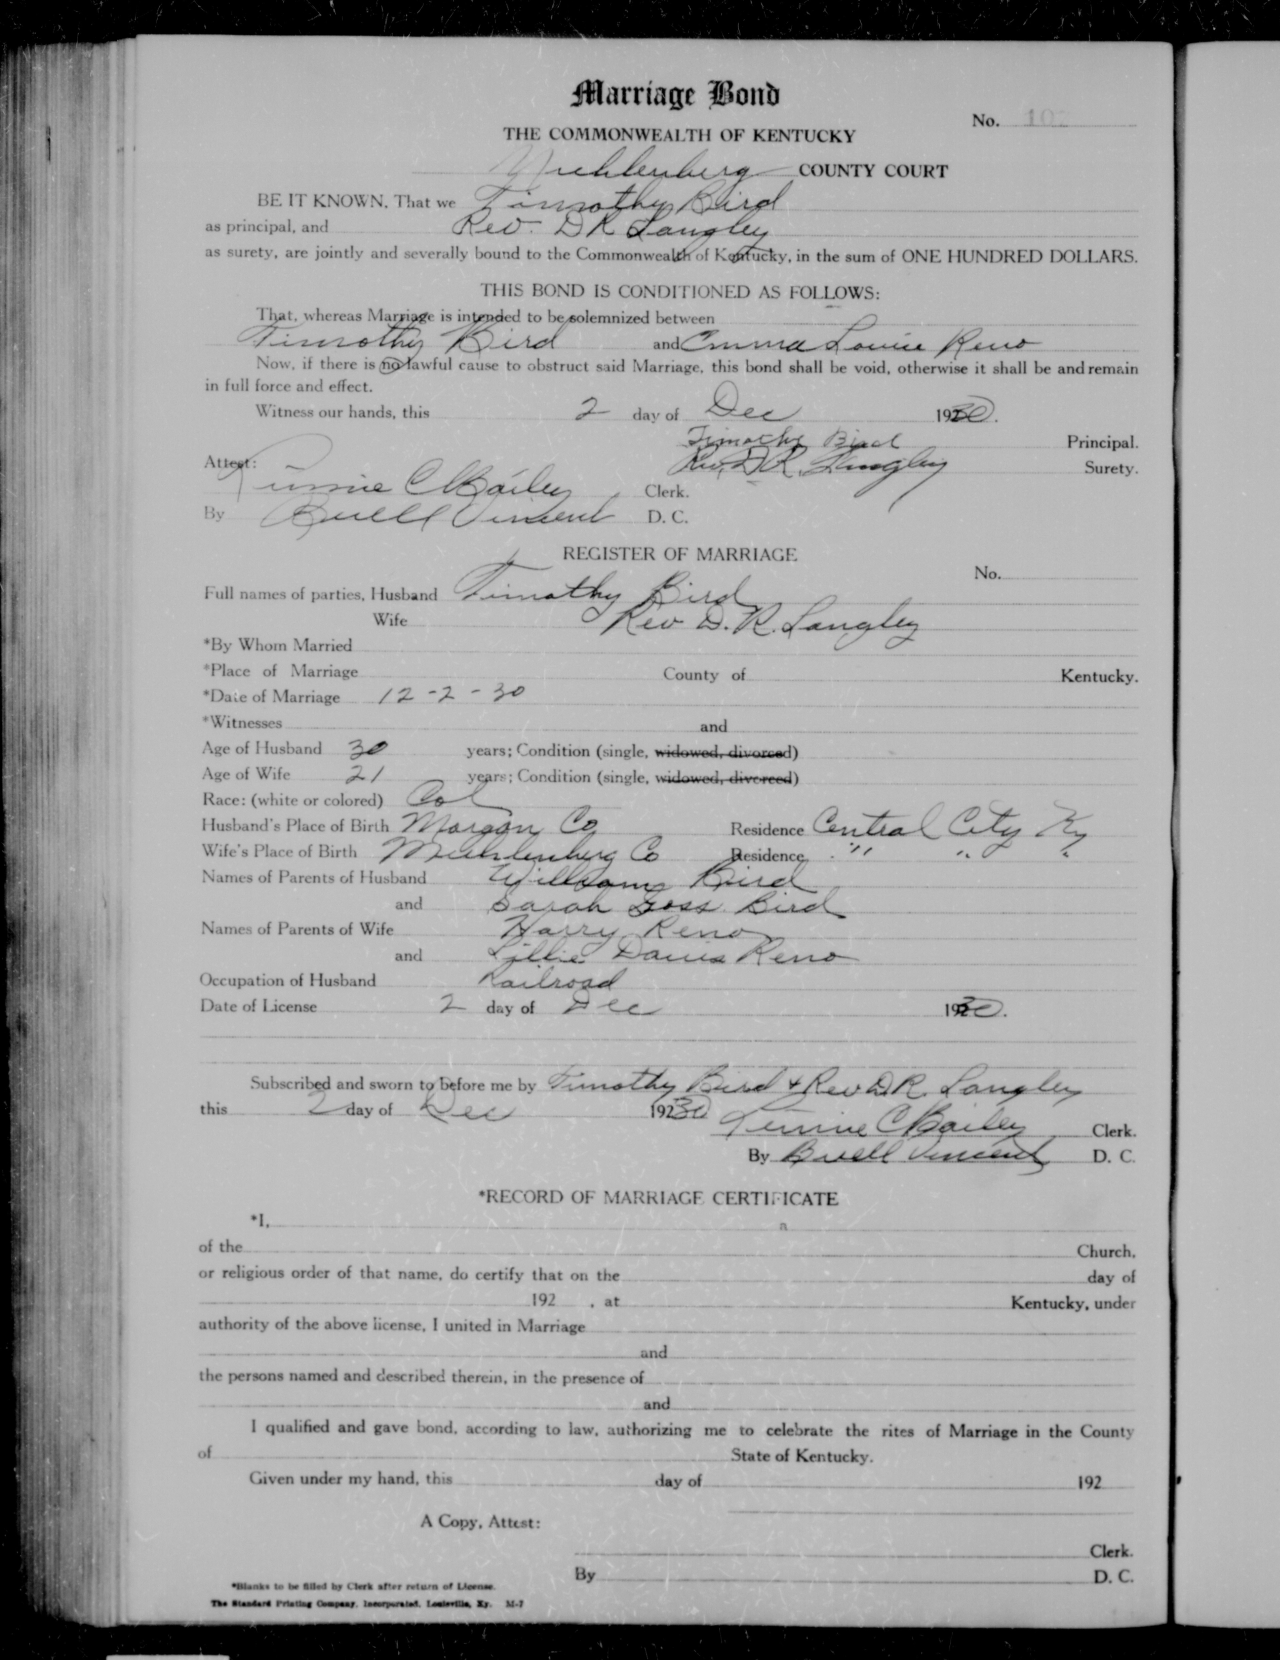 Marriage Bond
No. 10
THE COMMONWEALTH OF KENTUCKY
Muhlenberg COUNTY COURT
BE IT KNOWN, That we Timothy Bird
as principal, and Rev. D R Langley
as surety, are jointly and severally bound to the Commonwealth of Kentucky, in the sum of ONE HUNDRED DOLLARS.
THIS BOND IS CONDITIONED AS FOLLOWS:
That, whereas Marriage is intended to be solemnized between
Timothy Bird and Emma Louise Reno
Now, if there is no lawful cause to obstruct said Marriage, this bond shall be void, otherwise it shall be and remain
in full force and effect.
Witness our hands, this 2 day of Dec 1930.
Timothy Bird Principal.
Attest: Rev. D. R. Langley Surety.
C Bailey Clerk.
By Buell Vincent D. C.
REGISTER OF MARRIAGE
No.
Full names of parties, Husband Timothy Bird
Wife Rev D. R. Langley
*By Whom Married
*Place of Marriage County of Kentucky.
*Date of Marriage 12-2-30
*Witnesses and
Age of Husband 30 years; Condition (single, widowed, divorced)
Age of Wife 21 years; Condition (single, widowed, divorced)
Race: (white or colored) Col
Husband's Place of Birth Morgan Co Residence Central City Ky
Wife's Place of Birth Muhlenberg Co Residence " " "
Names of Parents of Husband William Bird
and Sarah Goss Bird
Names of Parents of Wife Harry Reno
and Lillie Davis Reno
Occupation of Husband Railroad
Date of License 2 day of Dec 1930.
Subscribed and sworn to before me by Timothy Bird & Rev D R. Langley
this 2 day of Dec 19230 C Bailey Clerk.
By Buell Vincent D. C.
*RECORD OF MARRIAGE CERTIFICATE
*I,
of the Church,
or religious order of that name, do certify that on the day of
192 , at Kentucky, under
authority of the above license, I united in Marriage
and
the persons named and described therein, in the presence of
and
I qualified and gave bond, according to law, authorizing me to celebrate the rites of Marriage in the County
of State of Kentucky.
Given under my hand, this day of 192
A Copy, Attest:
Clerk.
By D. C.
*Blanks to be filled by Clerk after return of License.
The Standard Printing Company, Incorporated, Louisville, Ky. M-7